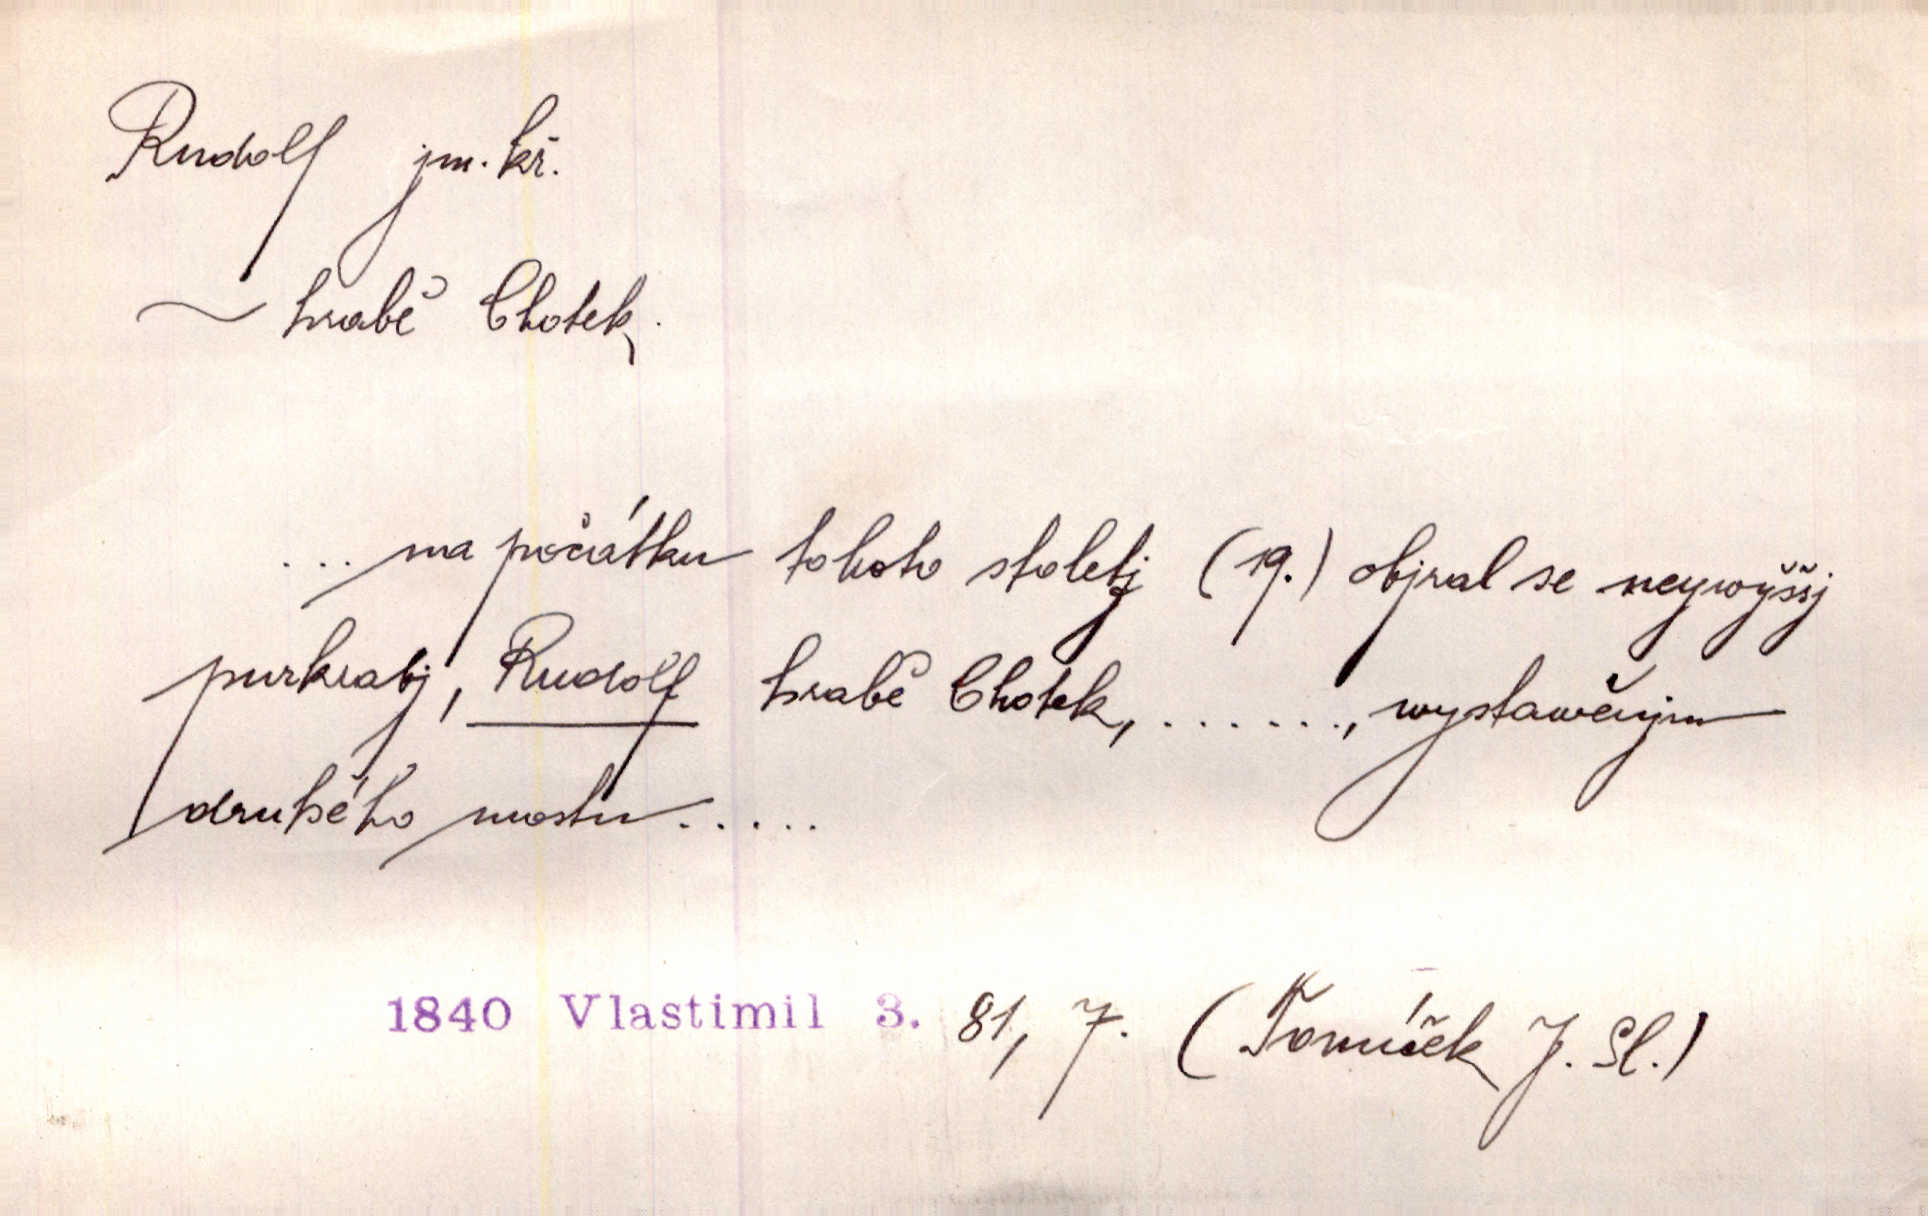 Rudolf jm. kř.
~ hrabě Chotek.
... na počátku tohoto stoletj (19.) objral se neywyššj
purkrabj, Rudolf hrabě Chotek, ......., wystawěnjm
druhého mostu.....
1840 Vlastimil 3. 81, 7. (Tomíček J. Sl.)